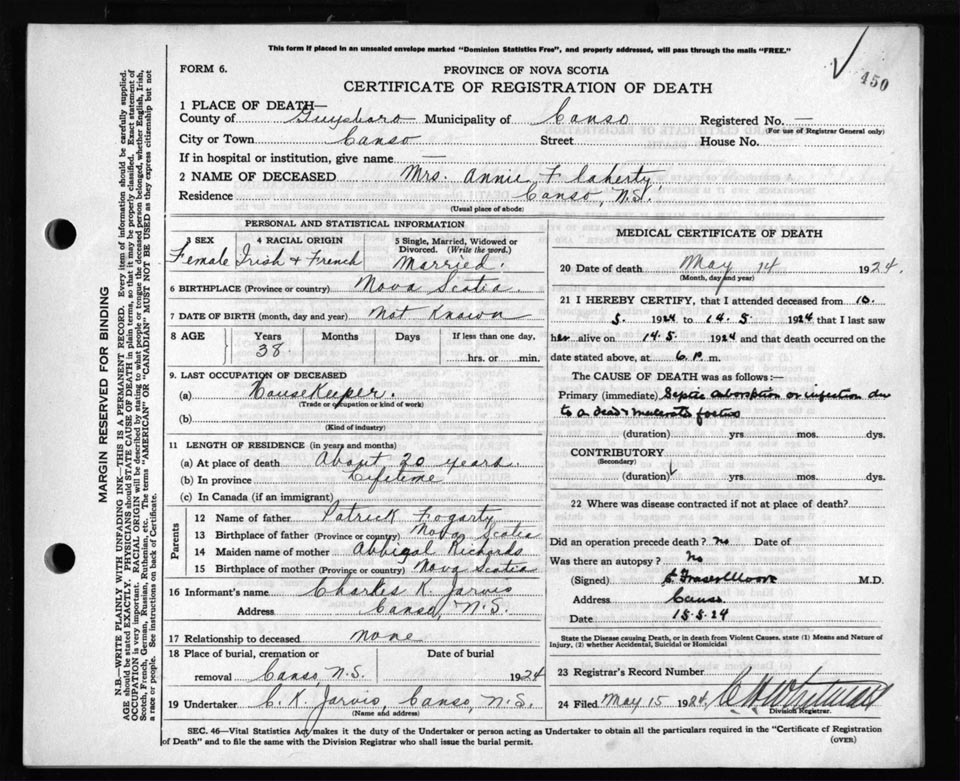 This form if placed in an unsealed envelope marked "Dominion Statistics Free", and properly addressed, will pass through the mails "FREE."
450
FORM 6.
PROVINCE OF NOVA SCOTIA
CERTIFICATE OF REGISTRATION OF DEATH
1 PLACE OF DEATH—
County of Guysboro Municipality of Canso Registered No. —
(For use of Registrar General only)
City or Town Canso Street House No.
If in hospital or institution, give name —
2 NAME OF DECEASED Mrs. Annie Flaherty
Residence Canso, N.S.
(Usual place of abode)
PERSONAL AND STATISTICAL INFORMATION
3 SEX 4 RACIAL ORIGIN 5 Single, Married, Widowed or Divorced. (Write the word.)
Female Irish + French Married.
6 BIRTHPLACE (Province or country) Nova Scotia.
7 DATE OF BIRTH (month, day and year) Not Known
8 AGE Years Months Days If less than one day,
38. hrs. or min.
9. LAST OCCUPATION OF DECEASED
(a) Housekeeper.
(Trade or occupation or kind of work)
(b)
(Kind of industry)
11 LENGTH OF RESIDENCE (in years and months)
(a) At place of death About 20 years.
(b) In province Lifetime
(c) In Canada (if an immigrant)
Parents
12 Name of father Patrick Fogarty
13 Birthplace of father (Province or country) Nova Scotia
14 Maiden name of mother Abbigal Richards
15 Birthplace of mother (Province or country) Nova Scotia
16 Informant's name Charles K. Jarvis
Address Canso, N.S.
17 Relationship to deceased none
18 Place of burial, cremation or Date of burial
removal Canso, N.S. 1924
19 Undertaker C. K. Jarvis, Canso, N.S.
(Name and address)
MEDICAL CERTIFICATE OF DEATH
20 Date of death May 14 1924.
(Month, day and year)
21 I HEREBY CERTIFY, that I attended deceased from 10.
5. 1924 to 14.5. 1924 that I last saw
her alive on 14.5. 1924 and that death occurred on the
date stated above, at 6 p. m.
The CAUSE OF DEATH was as follows:—
Primary (immediate) Septic absorption or infection due
to a dead + macerated foetus
(duration) yrs. mos. dys.
CONTRIBUTORY
(Secondary)
(duration) yrs. mos. dys.
22 Where was disease contracted if not at place of death?
Did an operation precede death? No Date of
Was there an autopsy? No
(Signed) C Fraser Moore M.D.
Address Canso.
Date 15.5.24
State the Disease causing Death, or in death from Violent Causes, state (1) Means and Nature of
Injury, (2) whether Accidental, Suicidal or Homicidal
23 Registrar's Record Number
24 Filed May 15 1924. C H Whitman
Division Registrar.
SEC. 46—Vital Statistics Act makes it the duty of the Undertaker or person acting as Undertaker to obtain all the particulars required in the "Certificate of Registration
of Death" and to file the same with the Division Registrar who shall issue the burial permit.
(OVER)
MARGIN RESERVED FOR BINDING
N.B.—WRITE PLAINLY WITH UNFADING INK—THIS IS A PERMANENT RECORD. Every item of information should be carefully supplied.
AGE should be stated EXACTLY. PHYSICIANS should STATE CAUSE OF DEATH in plain terms, so that it may be properly classified. Exact statement of
OCCUPATION is very important. RACIAL ORIGIN will be described by stating to what people or tongue the deceased person belonged, whether English, Irish,
Scotch, French, German, Russian, Ruthenian, etc. The terms "AMERICAN" or "CANADIAN" MUST NOT BE USED as they express citizenship but not
a race or people. See instructions on back of Certificate.